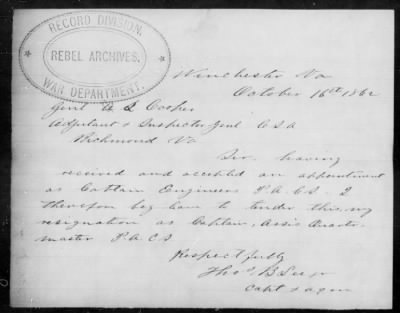 RECORD DIVISION.
REBEL ARCHIVES.
WAR DEPARTMENT.
Winchester Va
October 16th 1862
Genl Cooper
Adjutant & Inspector Genl C S A
Richmond Va
Sir, having
received and accepted an appointment
as Captain Engineers P. A. C. S. I
thereupon beg leave to tender this my
resignation as Captain, Assis Quarter-
master P. A. C. S
Respectfully
Thos B Lee
Capt & aqm